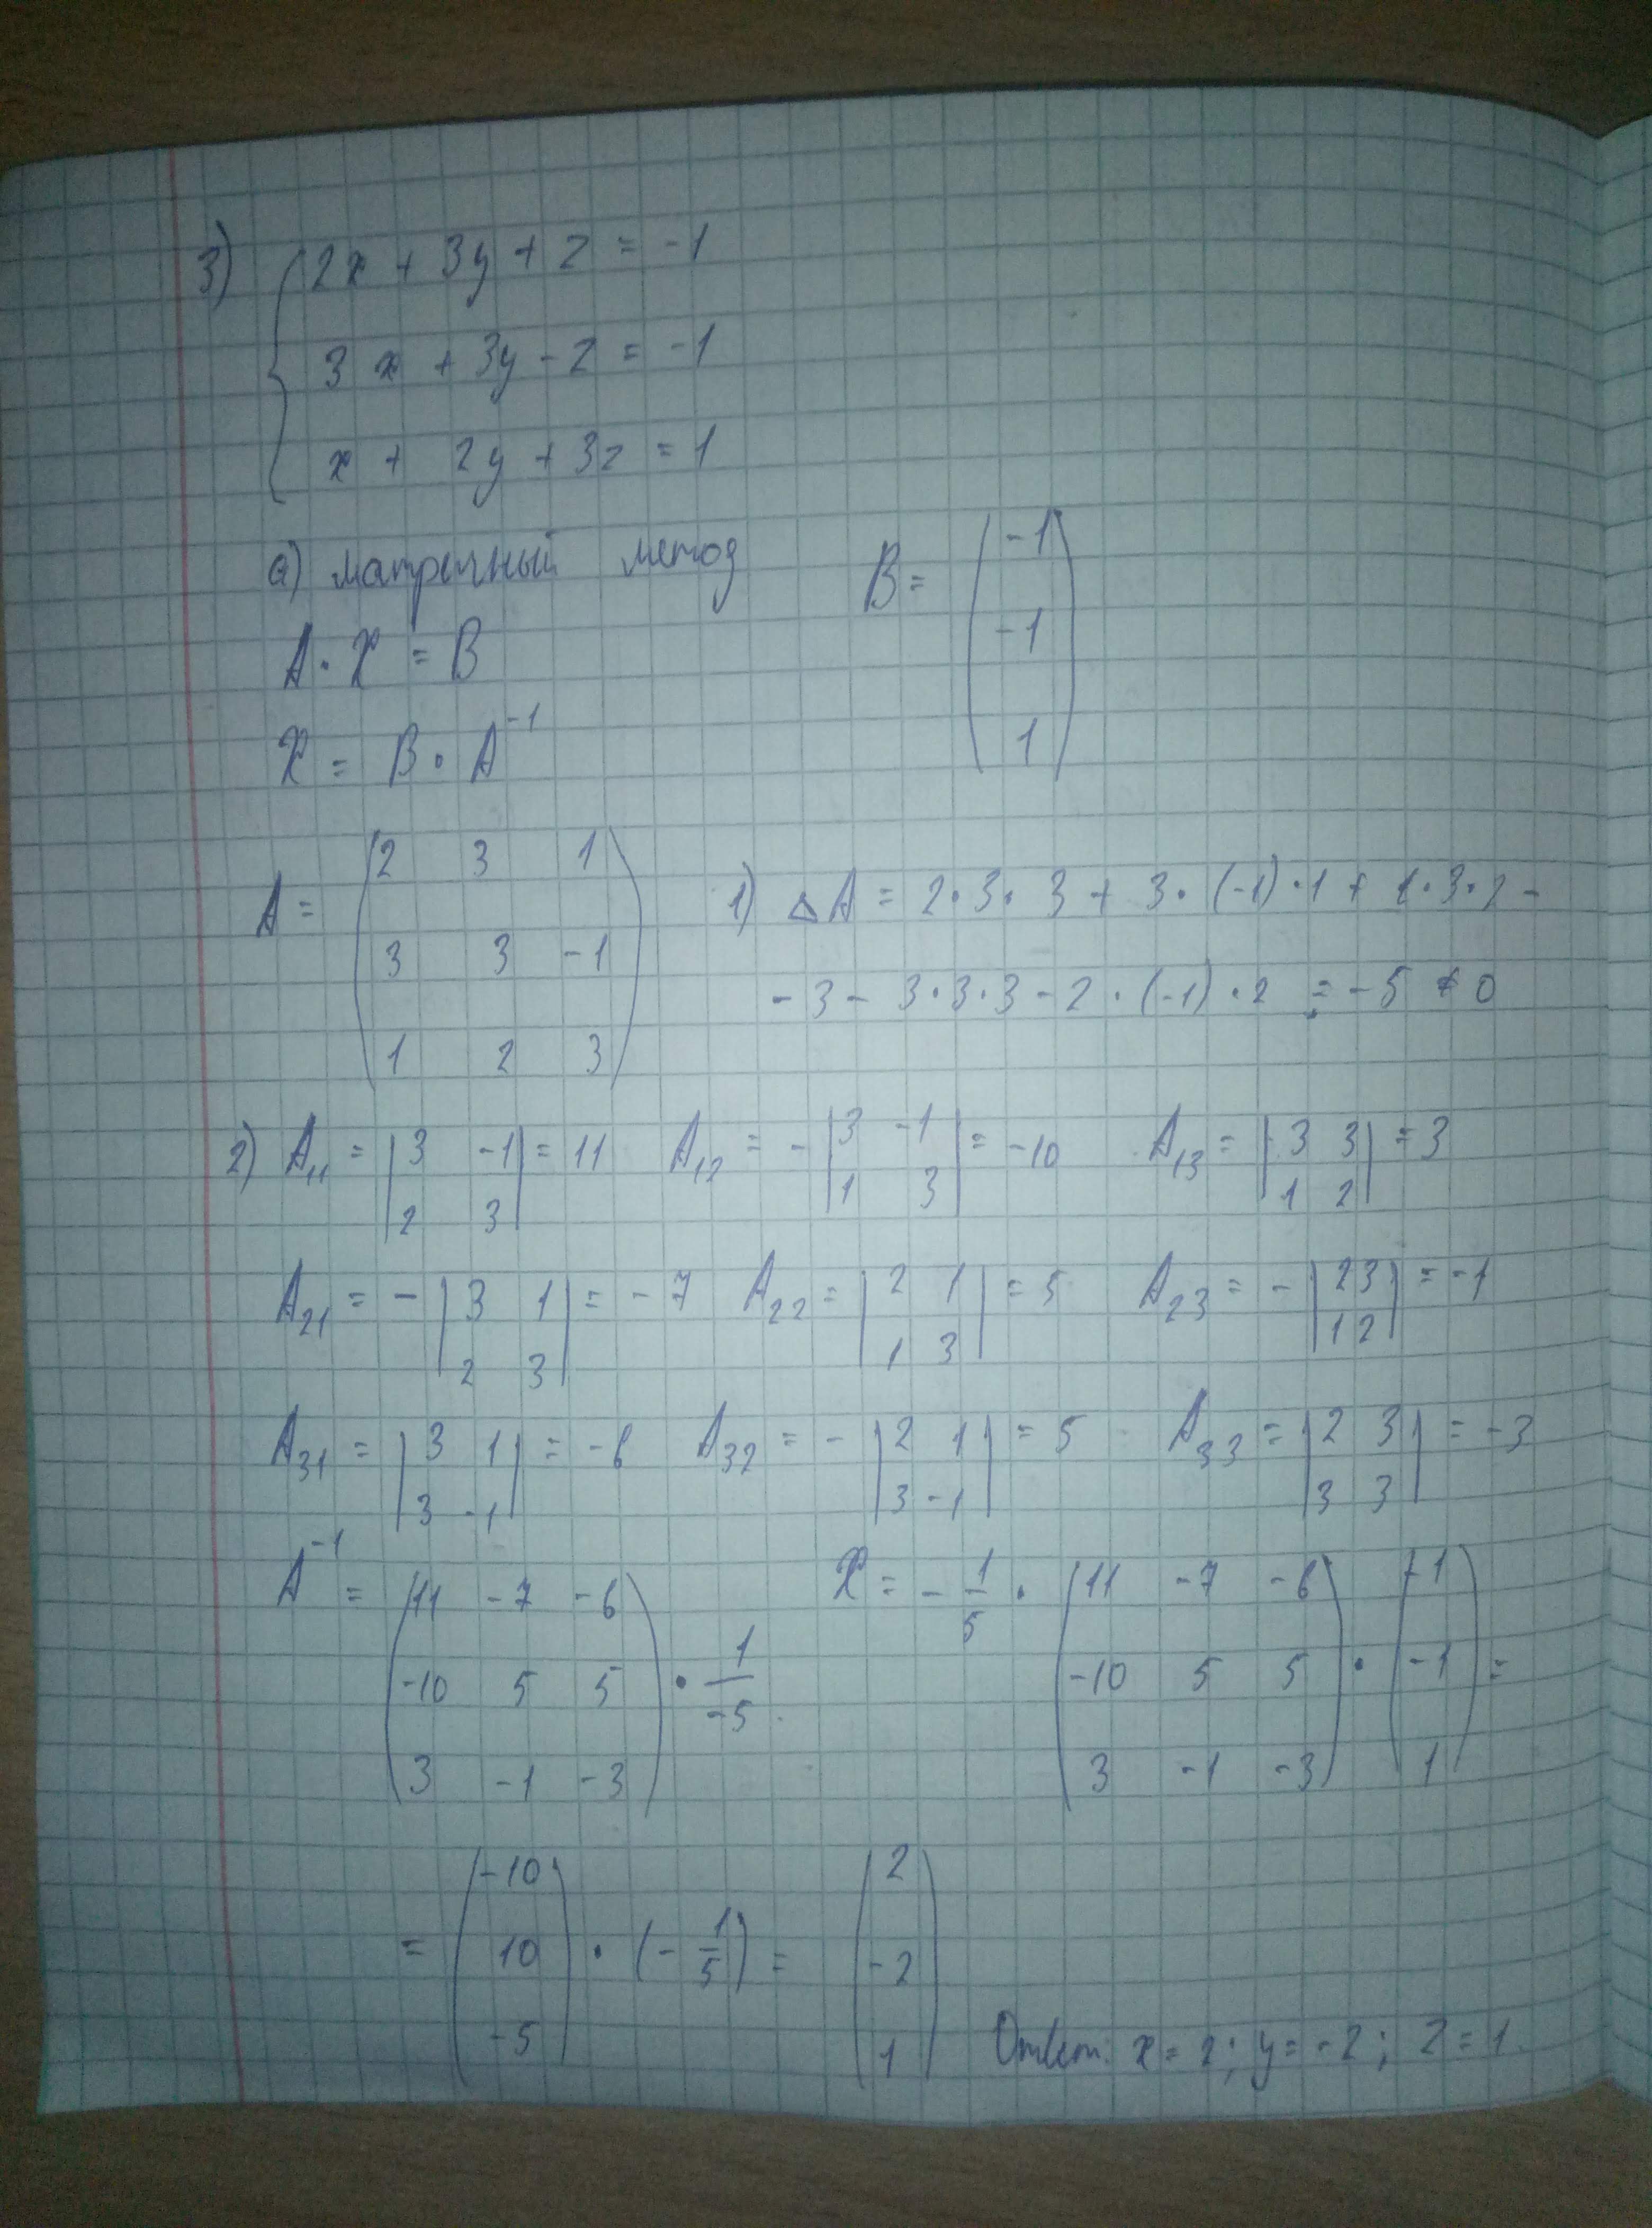 3) { 2x + 3y + z = -1
3x + 3y - z = -1
x + 2y + 3z = 1
а) матричный метод
B = ( -1
-1
1 )
A · X = B
X = B · A^-1
A = ( 2 3 1
3 3 -1
1 2 3 )
1) ΔA = 2·3·3 + 3·(-1)·1 + 1·3·2 -
- 3 - 3·3·3 - 2·(-1)·2 = -5 ≠ 0
2) A11 = | 3 -1 | = 11 A12 = - | 3 -1 | = -10 A13 = | 3 3 | = 3
| 2 3 | | 1 3 | | 1 2 |
A21 = - | 3 1 | = -7 A22 = | 2 1 | = 5 A23 = - | 2 3 | = -1
| 2 3 | | 1 3 | | 1 2 |
A31 = | 3 1 | = -6 A32 = - | 2 1 | = 5 A33 = | 2 3 | = -3
| 3 -1 | | 3 -1 | | 3 3 |
A^-1 = ( 11 -7 -6
-10 5 5
3 -1 -3 ) · 1/-5
X = - 1/5 · ( 11 -7 -6
-10 5 5
3 -1 -3 ) · ( -1
-1
1 ) =
= ( -10
10
-5 ) · (- 1/5) = ( 2
-2
1 )
Ответ: x = 2; y = -2; z = 1.